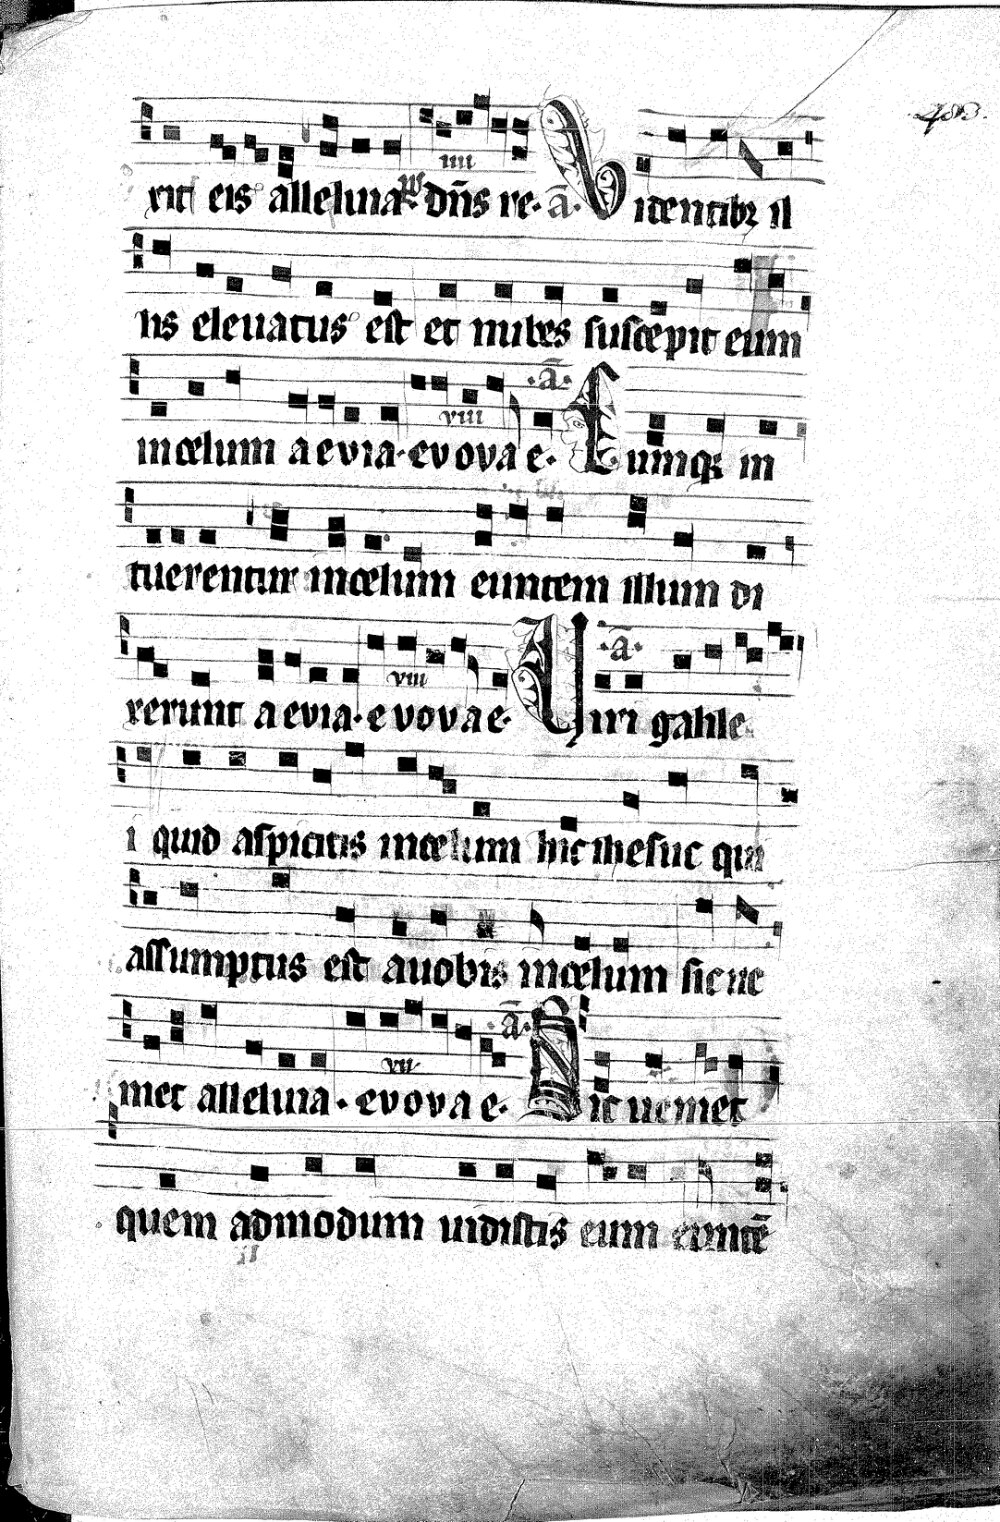 483.
iiii
xit eis alleluia ps. dn̄s re. a̅. Videntibꝫ il
lis eleuatus est et nubes suscepit eum
.a̅.
viii
in celum a e v i a . e v o v a e . Cumqꝫ in
tuerentur in celum euntem illum di
.a̅.
viii
xerunt a e v i a . e v o v a e . Uiri galile
i quid aspicitis in celum hic ihesuc qui
assumptus est a uobis in celum sic ue
.a̅.
vii
niet alleluia . e v o v a e . Sic ueniet
quem admodum uidistis eum euntē